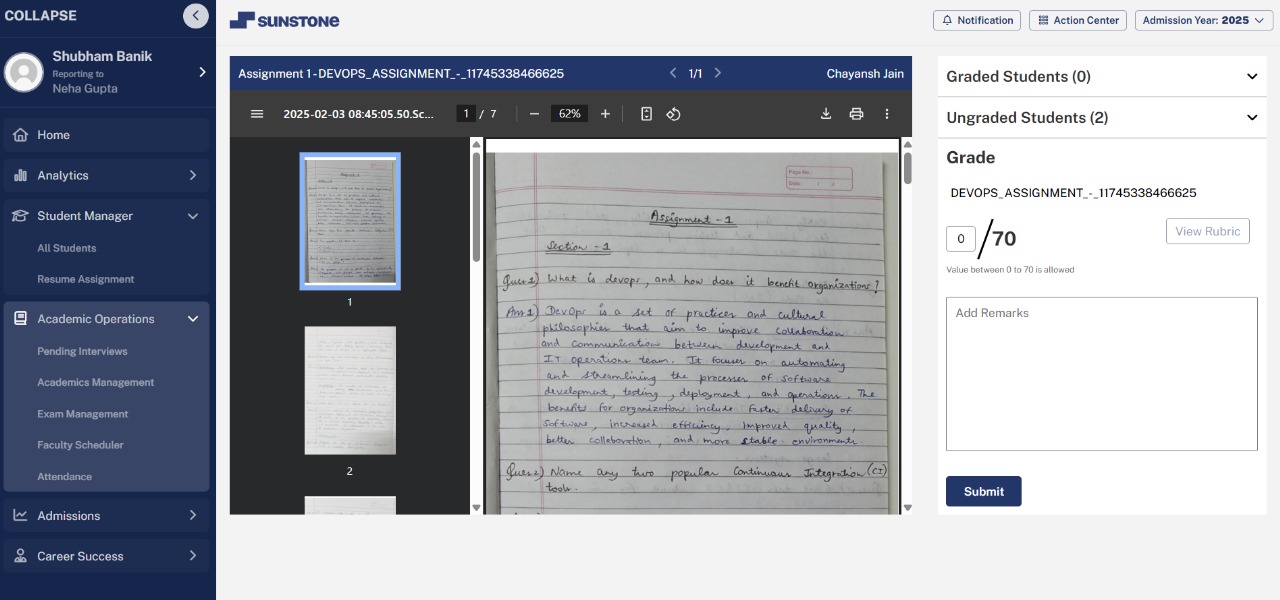 COLLAPSE
Shubham Banik
Reporting to
Neha Gupta
Home
Analytics
Student Manager
All Students
Resume Assignment
Academic Operations
Pending Interviews
Academics Management
Exam Management
Faculty Scheduler
Attendance
Admissions
Career Success
SUNSTONE
Notification
Action Center
Admission Year: 2025
Assignment 1 - DEVOPS_ASSIGNMENT_-_11745338466625
1/1
Chayansh Jain
2025-02-03 08:45:05.50.Sc...
1 / 7
62%
1
2
Page No.:
Date: / /
Assignment - 1
Section - 1
Ques1) What is devops, and how does it benefit organizations?
Ans1) DevOps is a set of practices and cultural
philosophies that aim to improve collaboration
and communication between development and
IT operations team. It focuses on automating
and streamlining the processes of software
development, testing, deployment, and operations. The
benefits for organizations include faster delivery of
software, increased efficiency, improved quality,
better collaboration, and more stable environments.
Ques2) Name any two popular Continuous Integration (CI)
tools.
Graded Students (0)
Ungraded Students (2)
Grade
DEVOPS_ASSIGNMENT_-_11745338466625
0 / 70
View Rubric
Value between 0 to 70 is allowed
Add Remarks
Submit